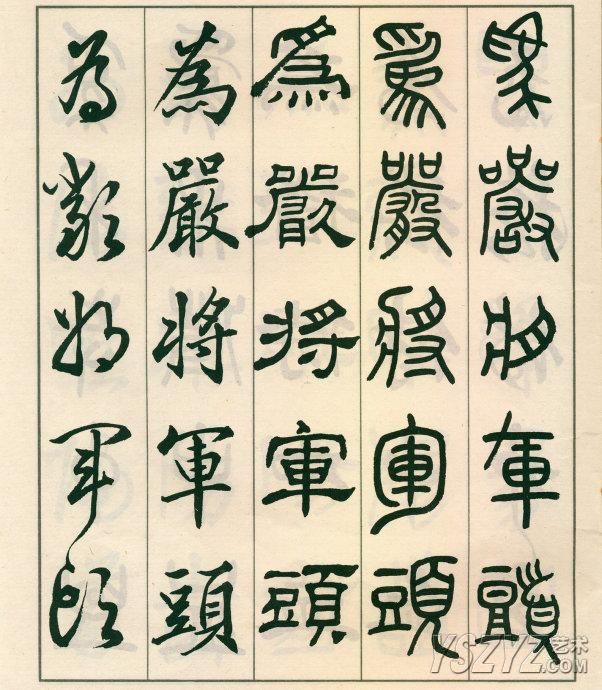 為嚴將軍頭
為嚴將軍頭
為嚴將軍頭
為嚴將軍頭
為嚴將軍頭
YSZYZ艺术